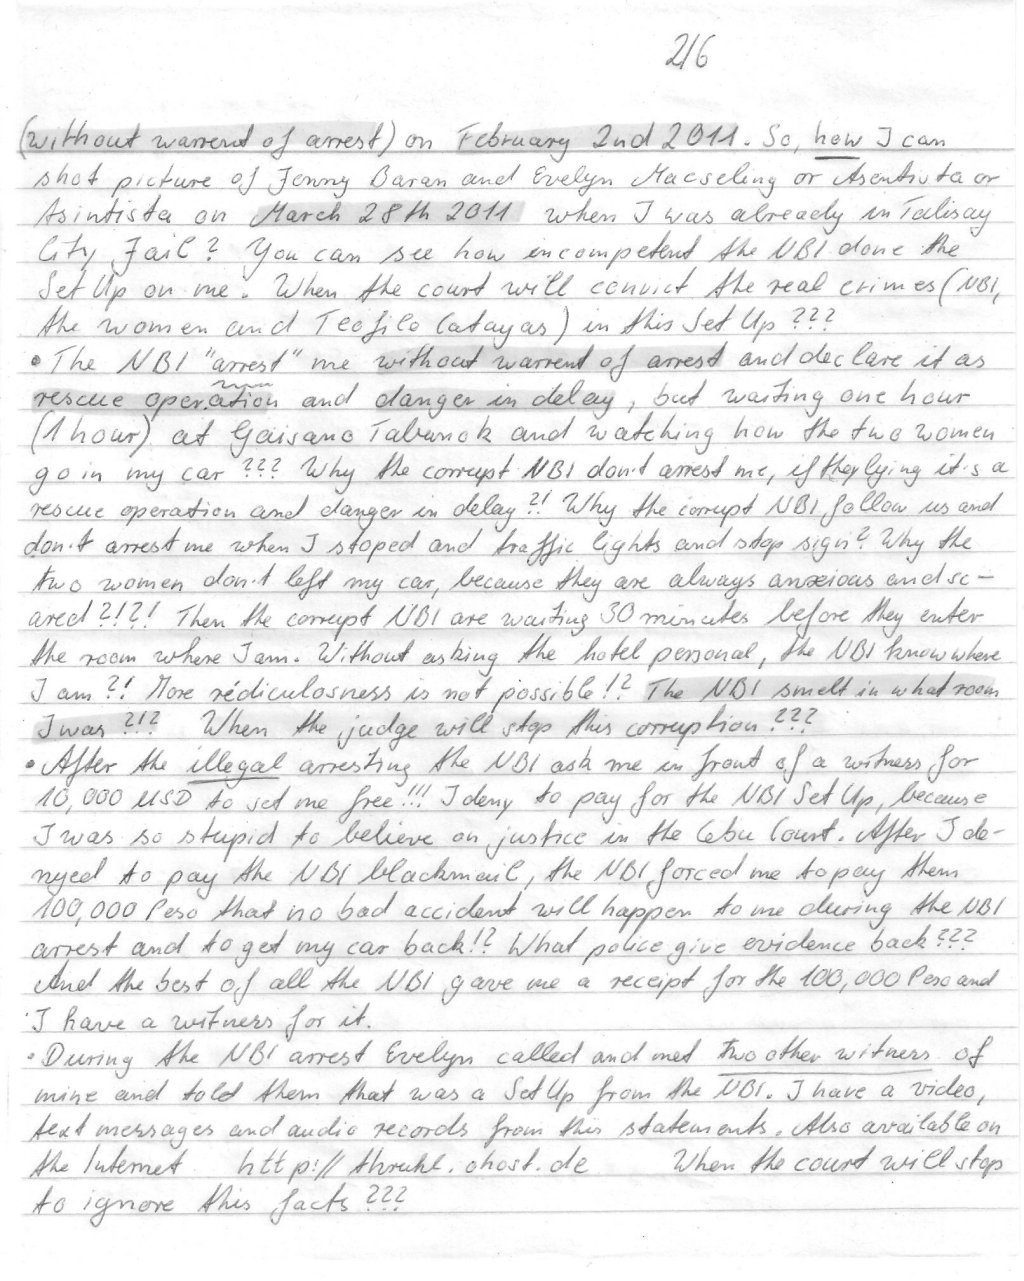 2/6
(without warrent of arrest) on February 2nd 2011. So, how I can
shot picture of Jenny Baran and Evelyn Macseling or Asentista or
Asintista on March 28th 2011 when I was already in Talisay
City Jail? You can see how incompetent the NBI done the
Set Up on me. When the court will convict the real crimes (NBI,
the women and Teofilo Catayas) in this Set Up ???
• The NBI "arrest" me without warrent of arrest and declare it as
rescue operation and danger in delay, but waiting one hour
(1 hour) at Gaisano Tabunok and watching how the two women
go in my car ??? Why the corrupt NBI don't arrest me, if they lying it's a
rescue operation and danger in delay?! Why the corrupt NBI follow us and
don't arrest me when I stoped and traffic lights and stop sign? Why the
two women don't left my car, because they are always anxious and sc-
ared?!?! Then the corrupt NBI are waiting 30 minutes before they enter
the room where I am. Without asking the hotel personal, the NBI know where
I am?! More rediculosness is not possible!? The NBI smelt in what room
I was?!? When the judge will stop this corruption ???
• After the illegal arresting the NBI ask me in front of a witness for
10,000 USD to set me free!!! I deny to pay for the NBI Set Up, because
I was so stupid to believe on justice in the Cebu Court. After I de-
nyed to pay the NBI blackmail, the NBI forced me to pay them
100,000 Peso that no bad accident will happen to me during the NBI
arrest and to get my car back!? What police give evidence back ???
And the best of all the NBI gave me a receipt for the 100,000 Peso and
I have a witness for it.
• During the NBI arrest Evelyn called and met two other witness of
mine and told them that was a Set Up from the NBI. I have a video,
text messages and audio records from this statements. Also available on
the Internet http://thruhl.ohost.de When the court will stop
to ignore this facts ???